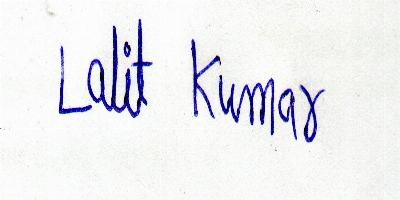 Lalit Kumar